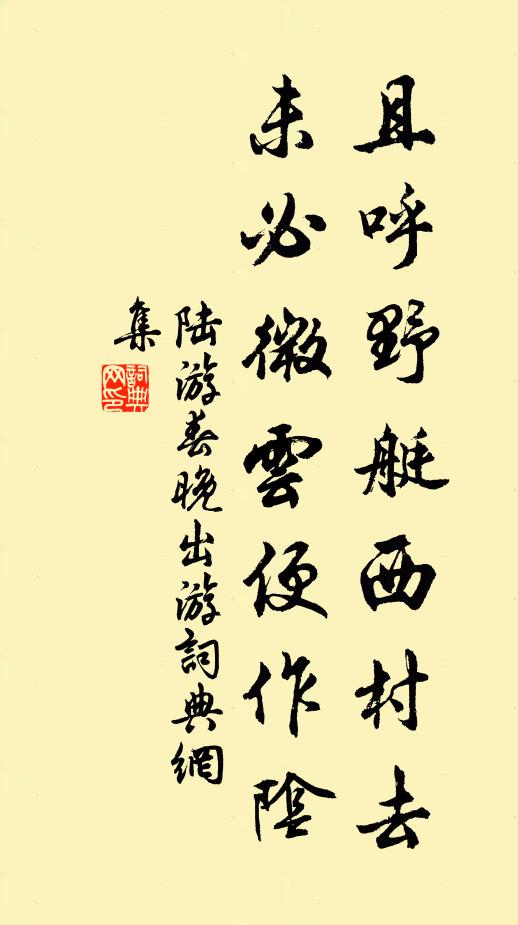 且呼野艇西村去
未必微雲便作陰
陸游春晚出游詞典網
集
詞典
网印